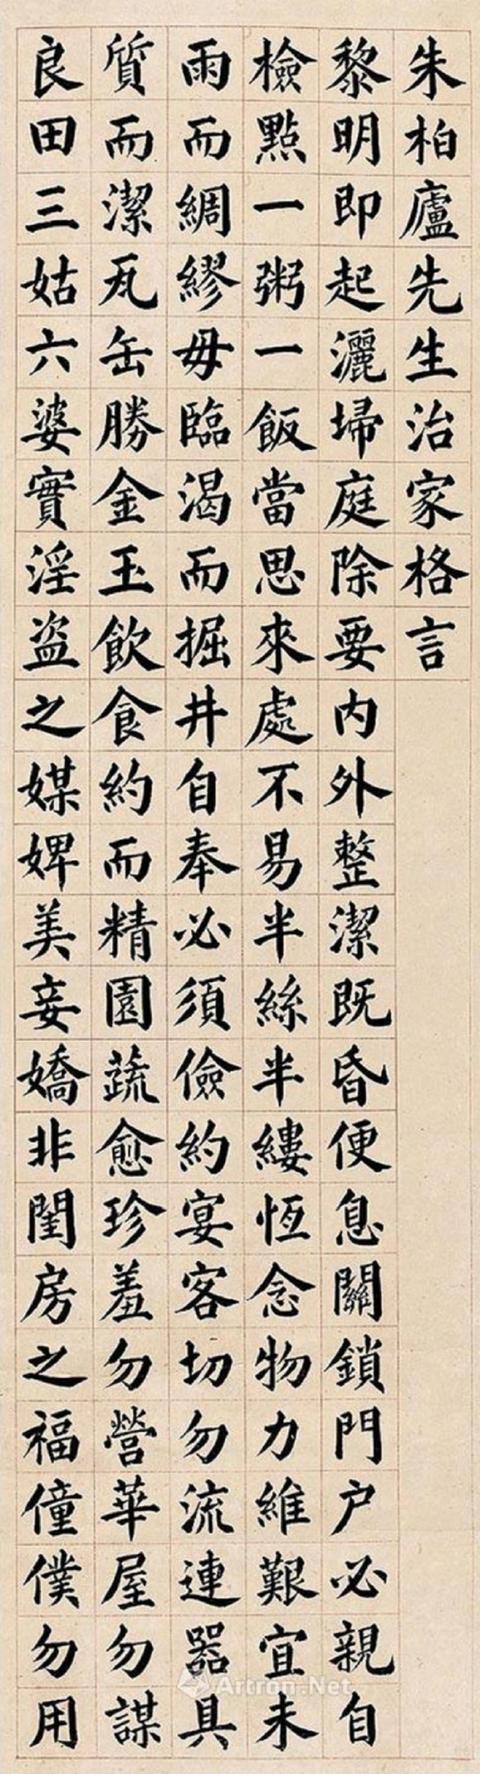 朱柏廬先生治家格言
黎明即起灑埽庭除要內外整潔既昏便息關鎖門户必親自
檢點一粥一飯當思來處不易半絲半縷恆念物力維艱宜未
雨而綢繆毋臨渴而掘井自奉必須儉約宴客切勿流連器具
質而潔瓦缶勝金玉飲食約而精園蔬愈珍羞勿營華屋勿謀
良田三姑六婆實淫盗之媒婢美妾嬌非閨房之福僮僕勿用
Artron.Net